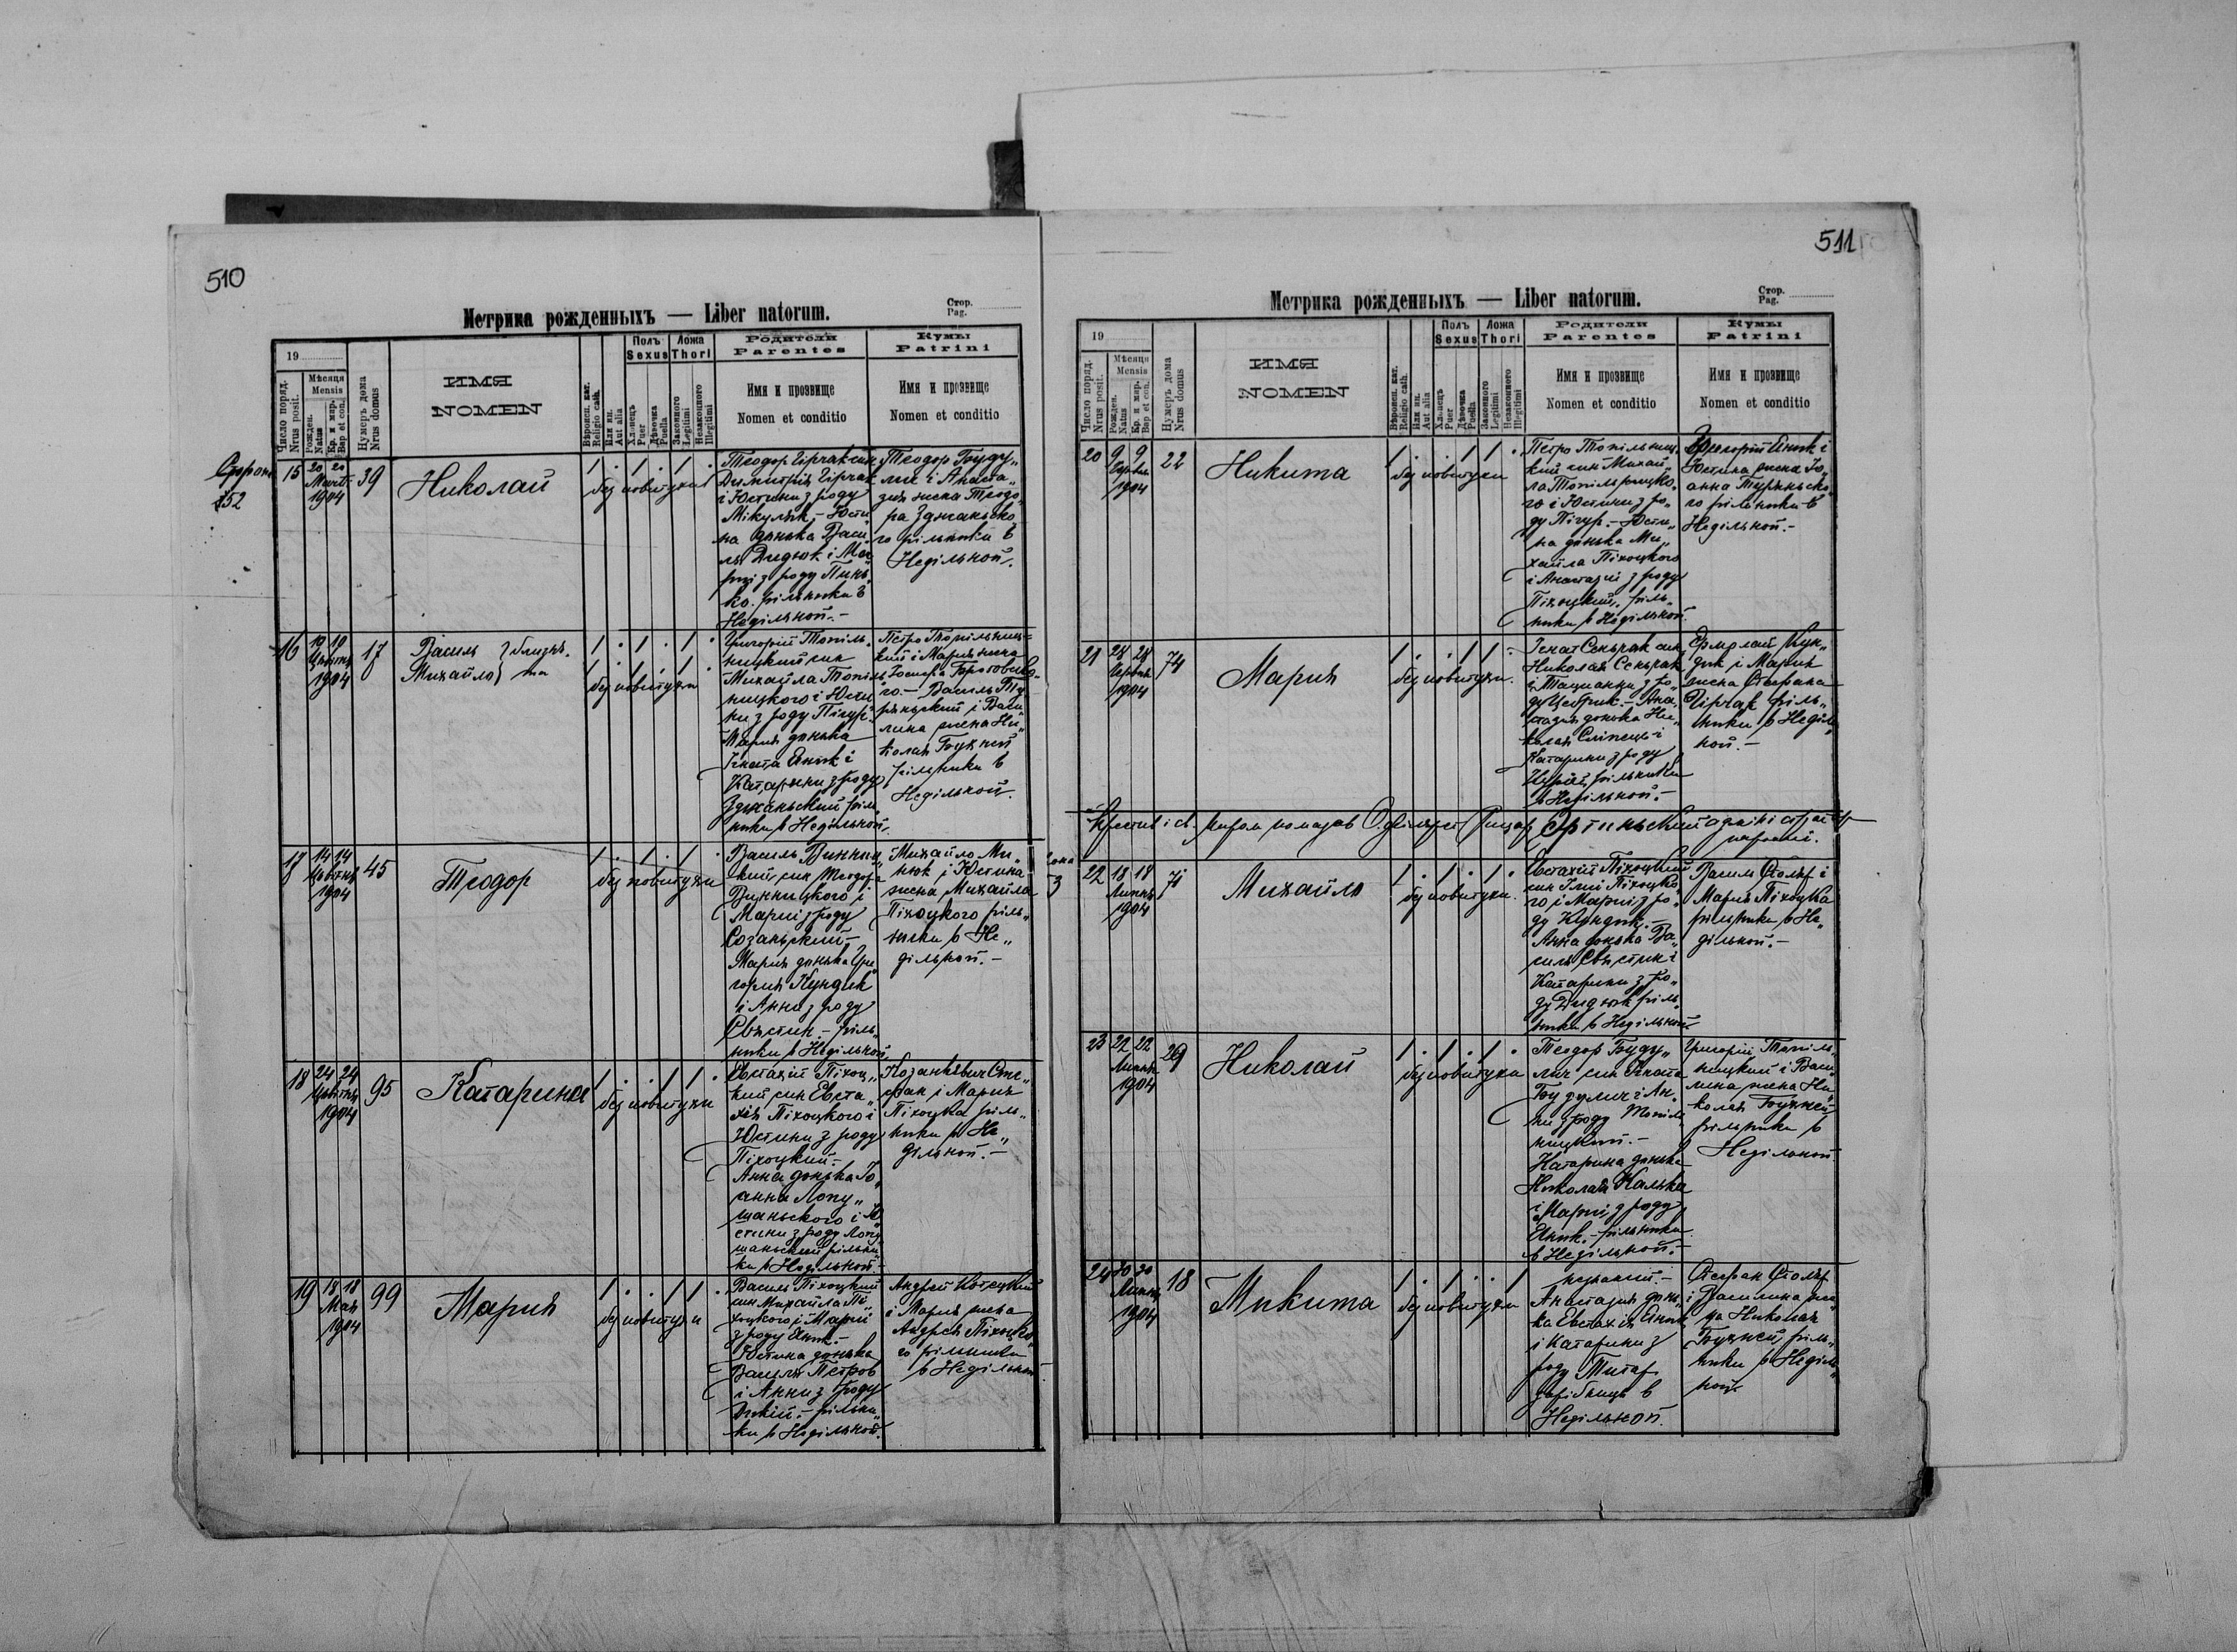 510
Метрика рожденныхъ — Liber natorum.
Стор.
Pag.
19
Число поряд.
Nrus posit.
Мѣсяця
Mensis
Рожден.
Natus
Кр. и мир.
Bap et con.
Нумеръ дома
Nrus domus
ИМЯ
NOMEN
Вѣроисп. кат.
Religio cath.
Или ин.
Aut alia
Полъ
Sexus
Хл-пецъ
Puer
Дѣвочка
Puella
Ложа
Thori
Законного
Legitimi
Незаконного
Illegitimi
Родители
Parentes
Имя и прозвище
Nomen et conditio
Кумы
Patrini
Имя и прозвище
Nomen et conditio
15
20 20
1904
39
Николай
без повитухи
Теодор
і Юстини з роду
Мікуляк, – Юсти
на донька Васи
ля Дидюк і Ма
рільники в
Недільной. –
Теодор Гоуду„
лич і Анаста„
зия жена Теодо„
го рільники в
Недільной.
16
19 19
Цвітня
1904
17
Василь
Михайло
близня.
та
без повитухи
Григорий Топіль„
ницкий син
Михайла Топіль
ницкого і Юсти
ни з роду Пігур. –
Мария донька
Ігната Яник і
Катарини з роду
рільники в Недільной.
Петро Топільниц„
кий і Мария жена
Василь
і Васи
лина жена Ни
колая Гоужней
рільники в
Недільной.
17
14 14
Цвітня
1904
45
Теодор
без повитухи
Василь Винниц„
кий, син Теодора
Винницкого і
Мариї з роду
Созаньский –
Мария донька Гри
гория Кундик
і Анни з роду
Свистин – ріль„
ники в Недільной.
Михайло Ми„
нюк і Юстина
жена Михайла
Піхоцкого ріль„
ники в Не„
дільной. –
18
24 24
Цвітня
1904
95
Катарина
без повитухи
Евстахий Піхоц„
кий син Евста„
хія Піхоцкого і
Юстини з роду
Піхоцкий. –
Анна донька Іо„
анна Лопу„
шаньского і Ю
стини з роду Лопу
шаньский рільни„
ки в Недільной. –
Козанкевич Сте„
фан і Мария
Піхоцка ріль„
ники в Не„
дільной. –
19
18 18
Мая
1904
99
Мария
без повитухи
Василь Піхоцкий
син Михайла Пі„
хоцкого і Мариї
з роду Яник. –
Юстина донька
Василя Петров
і Анни з роду
рільни„
ки в Недільной.
Андрей Котецкий
і Мария жена
Андрея Піхоцко
го рільники
в Недільной.
511
Метрика рожденныхъ — Liber natorum.
Стор.
Pag.
19
Число поряд.
Nrus posit.
Мѣсяця
Mensis
Рожден.
Natus
Кр. и мир.
Bap et con.
Нумеръ дома
Nrus domus
ИМЯ
NOMEN
Вѣроисп. кат.
Religio cath.
Или ин.
Aut alia
Полъ
Sexus
Хл-пецъ
Puer
Дѣвочка
Puella
Ложа
Thori
Законного
Legitimi
Незаконного
Illegitimi
Родители
Parentes
Имя и прозвище
Nomen et conditio
Кумы
Patrini
Имя и прозвище
Nomen et conditio
20
9 9
Червня
1904
22
Никита
без повитухи
Петро Топільниц„
кий син Михай„
ла Топільницко„
го і Юстини з ро„
ду Пігур. – Юсти„
на донька Ми„
хайла Піхоцкого
і Анастазиї з роду
Піхоцкий, ріль„
ники в Недільной.
Григорий Яник і
Юстина жена Іо„
анна Туряньско„
го рільники в
Недільной. –
21
24 24
Червня
1904
74
Мария
без повитухи
Ігнат Сеньчак син
Николая Сеньчак
і Тацианни з ро„
ду Цебрик. – Ана„
стазия донька Ни„
колая Сліпецкі
Катарини з роду
рільники
в Недільной. –
Ермолай Кун„
дик і Мария
жена Стефана
ріль„
ники в Неділь„
ной. –
Крестив і св. миром помазав
22
18 18
Липня
1904
71
Михайло
без повитухи
Евстахий Піхоцкий
син Ілиї Піхоцко
го і Мариї з ро„
ду Кундик. –
Анна донька Ва„
силя Свистин і
Катарини з ро„
ду Дидюк ріль„
ники в Недільной
Василь Столяр і
Мария Піхоцка
рільники в Не„
дільной. –
23
22 22
Липня
1904
29
Николай
без повитухи
Теодор Гоуду„
лич син Ігната
Гоудулич і Ан„
ни з роду Топіль
ницкий. –
Катарина донька
Николая Калька
і Мариї з роду
Яник. – рільники
в Недільной. –
Григорий Топіль„
ницкий і Васи
лина жена Ни„
колая Гоужней
рільники в
Недільной
24
20 20
Липня
1904
18
Микита
без повитухи
незнаний. –
Анастазия донь„
ка Евстахія Яник
і Катарини з
роду Титар
зарібниця в
Недільной.
Стефан Столяр
і Василина же„
на Николая
Гоужней, ріль„
ники в Неділь„
ной.